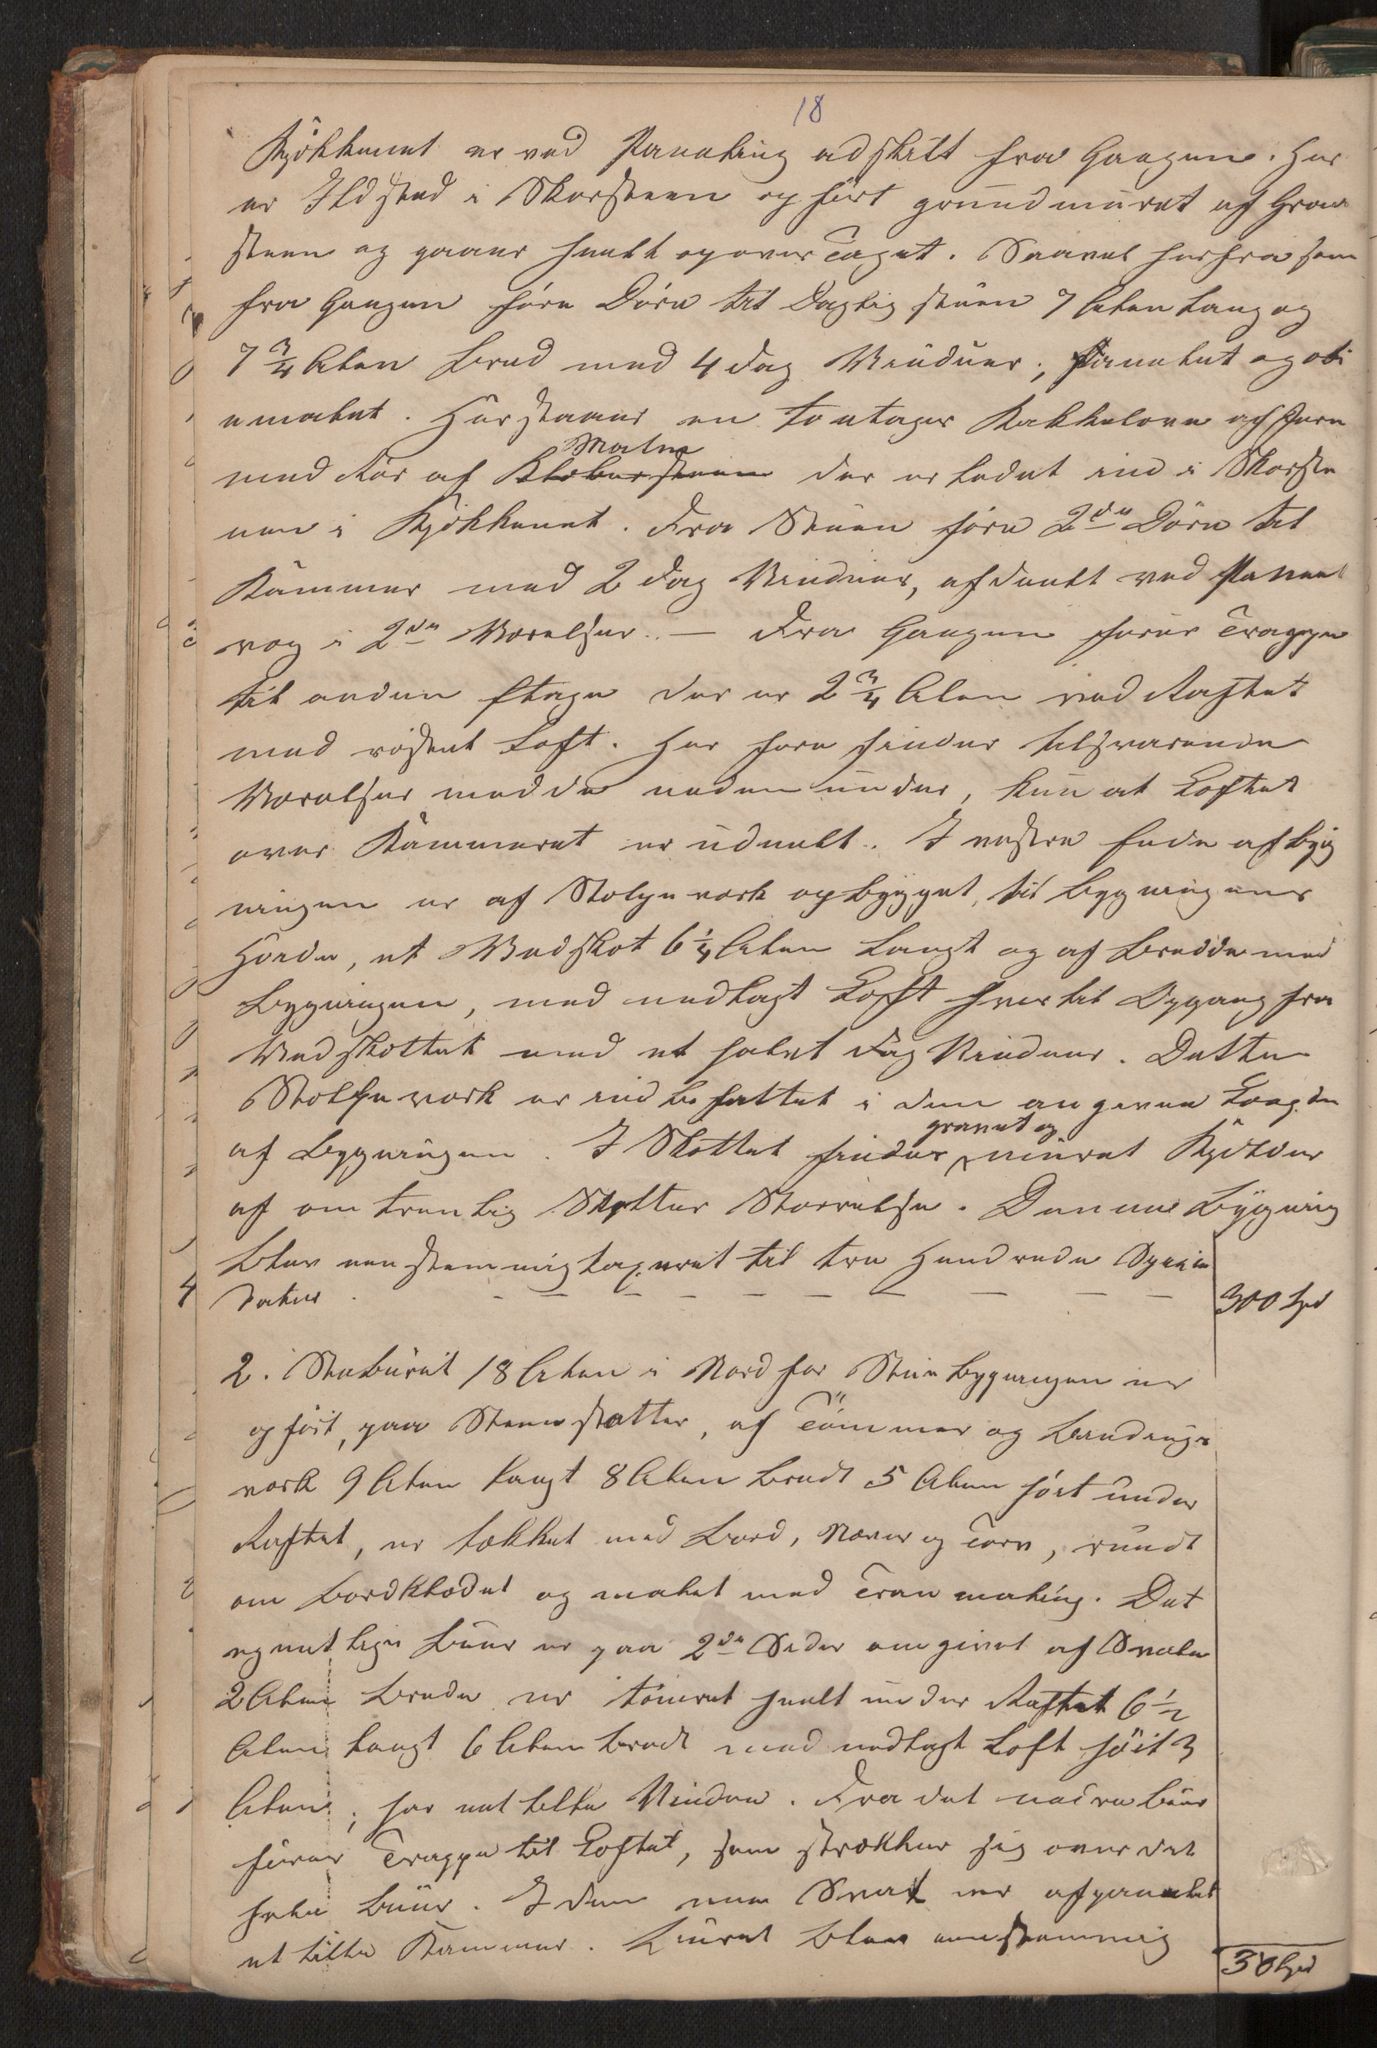 18
Kjökkenet er ved Paneling adskilt fra Gangen. Her
er Ildsted i Skorsteen opfört grundmuret af Graa
steen og gaaer heelt op over Taget. Saavel herfra som
fra Gangen före Döre til Daglig stuen 7 Alen lang og
7 3/4 Alen bred med 4 Fag Vinduer; Panelet og oli
emalet. Her staaer en toetages Kakkelovn af Jern
Malm
med Rör af Klæbersteen der er ledet ind i Skorste
nen i Kjökkenet. Fra Stuen före 2de Döre til
Kammer med 2 Fag Vinduer, afdeelt ved Paneel
væg i 2de Værelser. — Fra Gangen förer Trappe
til anden Etage der er 2 3/4 Alen ved Raftet
med röstet Loft. Her fore findes tilsvarende
Værelser med de neden under, kun at Loftet
over Kammeret er udeelt. I vestre Ende af Byg
ningen er af Stolpeværk opbygget, til Bygningens
Höide, et Vedskot 6 1/4 Alen langt og af Bredde med
Bygningen, med nedlagt Loft hvortil Opgang fra
Vedskottet med et halvt Fag Vinduer. Dette
Stolpeværk er indbefattet i den angivne Længde
gravet og
af Bygningen. I Skottet findes muret Kjelder
af omtrentlig Skottes Størrelse. Denne Bygning
blev eenstemmig taxeret til tre Hundrede Species
Daler. — — — — — — — — — 300 Spd
2. Stabüret 18 Alen i Nord for Stuebygningen er
opfört, paa Steenstøtter, af Tömmer og Bindings
værk 9 Alen langt 8 Alen bredt 5 Alen höit under
Raftet, er tækket med Bord, Næver og Torv, rundt
om bordklædet og malet med Tranmaling. Det
egentlige Buur er paa 2de Sider omgivet af Svale
2 Alen brede er tömret heelt under Raftet 6 1/2
Alen langt 6 Alen bredt med nedlagt Loft höit 3
Alen; har eet lille Vindue. Fra det nedre Buur
förer Trappe til Loftet, som strækker sig over det
hele Buur. I den ene Sval er afpanelet
et lille Kammer. Buret blev eenstemmig
30 Spd